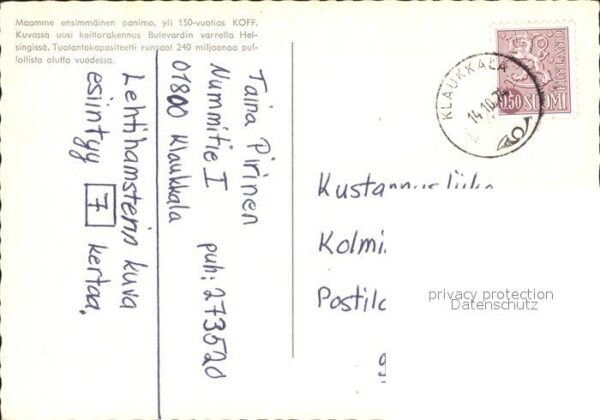 Maamme ensimmäinen panimo, yli 150-vuotias KOFF.
Kuvassa uusi keittorakennus Bulevardin varrella Hel-
singissä. Tuotantokapasiteetti runsaat 240 miljoonaa pul-
lollista olutta vuodessa.
Lehtihamsterin kuva
esiintyy 7 kertaa.
Taina Pirinen
Nummitie I
01800 Klaukkala
puh: 273520
KLAUKKALA
14.10.75
0,50 SUOMI
Kustannusliike
Kolmi
Postilo
9
privacy protection
Datenschutz